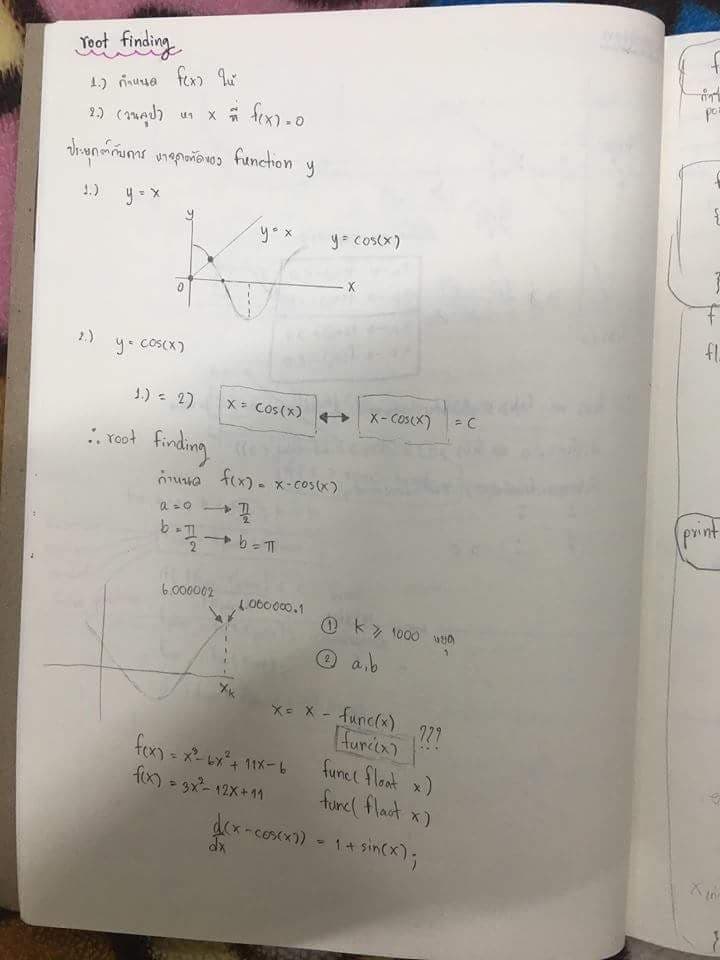 root finding
1.) กำหนด f(x) ให้
2.) (วนลูป) หา x ที่ f(x) = 0
ประยุกต์กับการ หาจุดตัดของ function y
1.) y = x
y
y = x
y = cos(x)
0
x
2.) y = cos(x)
1.) = 2) x = cos(x) ↔ x - cos(x) = C
∴ root finding
กำหนด f(x) = x - cos(x)
a = 0 → π/2
b = π/2 → b = π
6.000002
6.000000.1
① k ≥ 1000 หยุด
② a, b
xk
x = x - func(x)
func(x) ???
f(x) = x³ - 6x² + 11x - 6 func( float x)
f(x) = 3x² - 12x + 11 func( float x)
d/dx (x - cos(x)) = 1 + sin(x);
f
f
{
}
f
fl
print
}